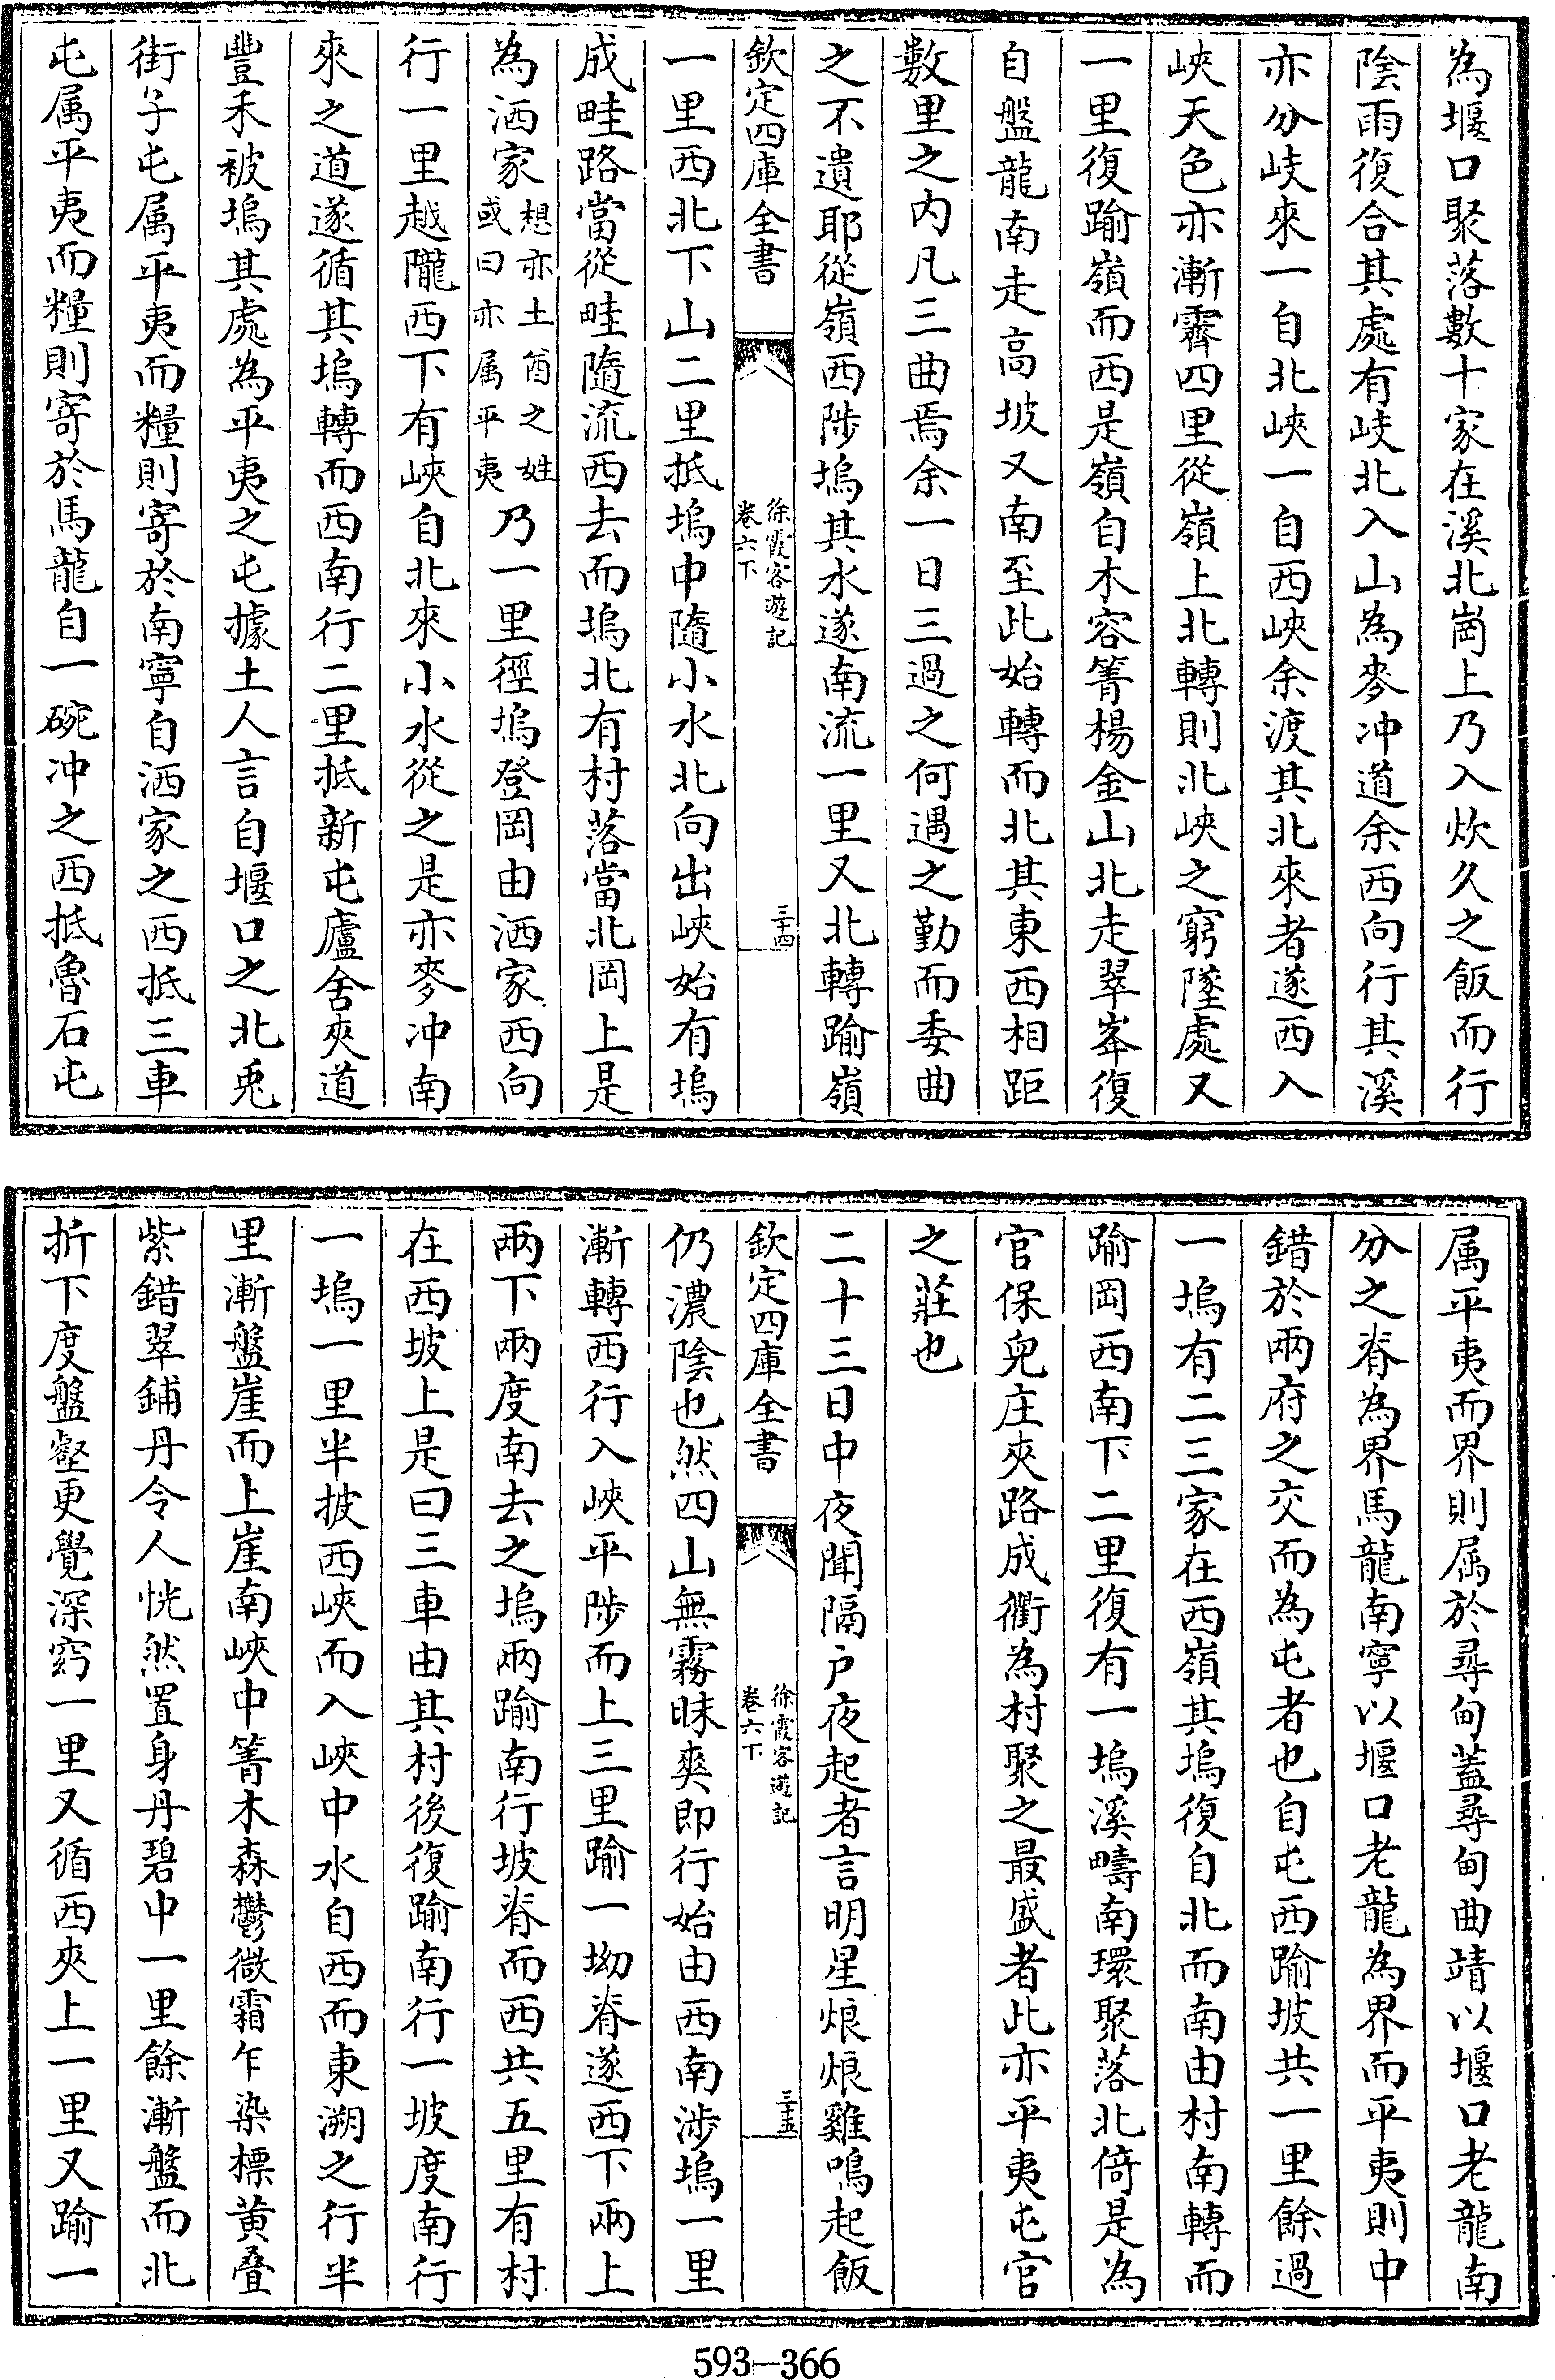 為堰口聚落數十家在溪北崗上乃入炊久之飯而行
陰雨復合其處有岐北入山為麥冲道余西向行其溪
亦分岐來一自北峽一自西峽余渡其北來者遂西入
峽天色亦漸霽四里從嶺上北轉則北峽之窮墜處又
一里復踰嶺而西是嶺自木容箐楊金山北走翠峯復
自盤龍南走高坡又南至此始轉而北其東西相距
數里之内凡三曲焉余一日三過之何遇之勤而委曲
之不遺耶從嶺西陟塢其水遂南流一里又北轉踰嶺
欽定四庫全書
徐霞客遊記
卷六下
三十四
一里西北下山二里抵塢中隨小水北向出峽始有塢
成畦路當從畦隨流西去而塢北有村落當北岡上是
為洒家想亦土酋之姓或曰亦属平夷乃一里徑塢登岡由洒家西向
行一里越隴西下有峽自北來小水從之是亦麥冲南
來之道遂循其塢轉而西南行二里抵新屯廬舍夾道
豐禾被塢其處為平夷之屯據土人言自堰口之北兎
街子屯属平夷而糧則寄於南寧自洒家之西抵三車
屯属平夷而糧則寄於馬龍自一碗冲之西抵魯石屯
属平夷而界則屬於尋甸蓋尋甸曲靖以堰口老龍南
分之脊為界馬龍南寧以堰口老龍為界而平夷則中
錯於兩府之交而為屯者也自屯西踰坡共一里餘過
一塢有二三家在西嶺其塢復自北而南由村南轉而
踰岡西南下二里復有一塢溪疇南環聚落北倚是為
官保兒庄夾路成衢為村聚之最盛者此亦平夷屯官
之莊也
二十三日中夜聞隔户夜起者言明星烺烺雞鳴起飯
欽定四庫全書
徐霞客遊記
卷六下
三十五
仍濃陰也然四山無霧昧爽即行始由西南涉塢一里
漸轉西行入峽平陟而上三里踰一坳脊遂西下兩上
兩下兩度南去之塢兩踰南行坡脊而西共五里有村
在西坡上是曰三車由其村後復踰南行一坡度南行
一塢一里半披西峽而入峽中水自西而東溯之行半
里漸盤崖而上崖南峽中箐木森鬱微霜乍染標黄叠
紫錯翠鋪丹令人恍然置身丹碧中一里餘漸盤而北
折下度盤壑更覺深窈一里又循西夾上一里又踰一
593—366